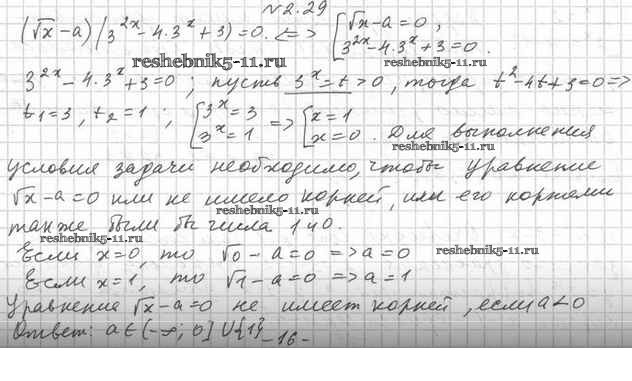 №2.29
(√x-a)(3^2x-4·3^x+3)=0. <=> [√x-a=0,
3^2x-4·3^x+3=0.
reshebnik5-11.ru reshebnik5-11.ru
3^2x-4·3^x+3=0; пусть 3^x=t>0, тогда t²-4t+3=0=>
t1=3, t2=1; [3^x=3 3^x=1 => [x=1 x=0. Для выполнения
reshebnik5-11.ru
условия задачи необходимо, чтобы уравнение
√x-a=0 или не имело корней, или его корнями
reshebnik5-11.ru
также были бы числа 1 и 0.
reshebnik5-11.ru
Если x=0, то √0-a=0=>a=0 reshebnik5-11.ru
Если x=1, то √1-a=0=>a=1
Уравнение √x-a=0 не имеет корней, если a<0
reshebnik5-11.ru
Ответ: a∈(-∞; 0]∪{1}
-16-